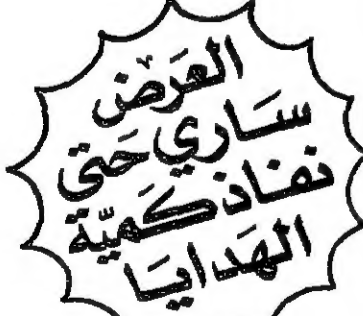 العَرض
سَاري حَتى
نفاذ كَميّة
الهَدايَا